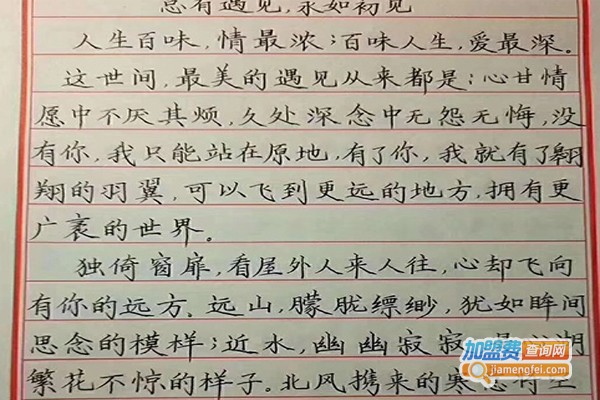 总有遇见,永如初见
人生百味,情最浓;百味人生,爱最深。
这世间,最美的遇见从来都是:心甘情
愿中不厌其烦,久处深念中无怨无悔,没
有你,我只能站在原地,有了你,我就有了翱
翔的羽翼,可以飞到更远的地方,拥有更
广袤的世界。
独倚窗扉,看屋外人来人往,心却飞向
有你的远方、远山,朦胧缥缈,犹如眸间
思念的模样;近水,幽幽寂寂,
繁花不惊的样子。北风携来的寒
加盟费查询网
jiamengfei.com